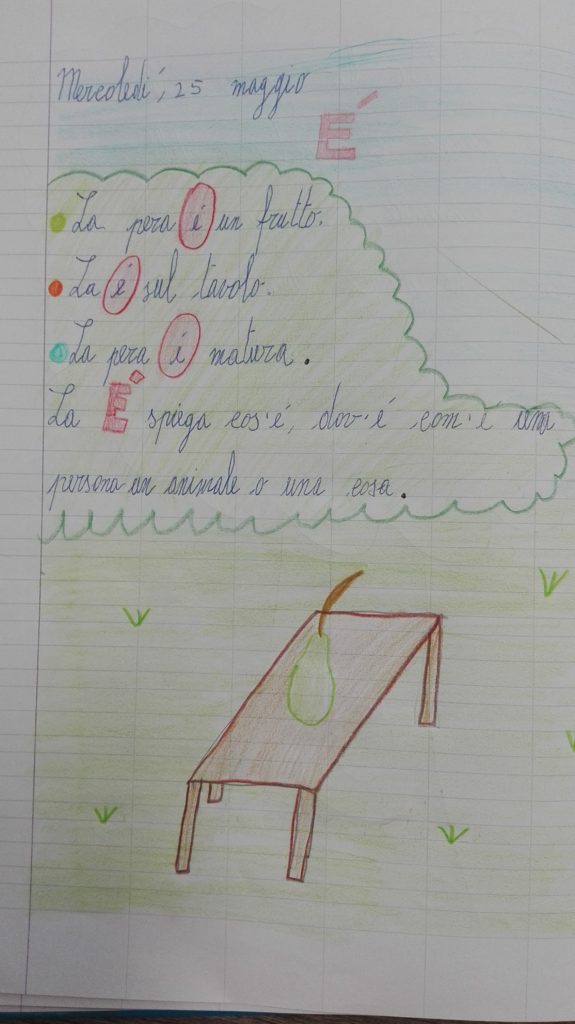 Mercoledí, 25 maggio
É
La pera é un frutto.
La é sul tavolo.
La pera é matura.
La É spiega cos'é, dov'é com'é una
persona un animale o una cosa.